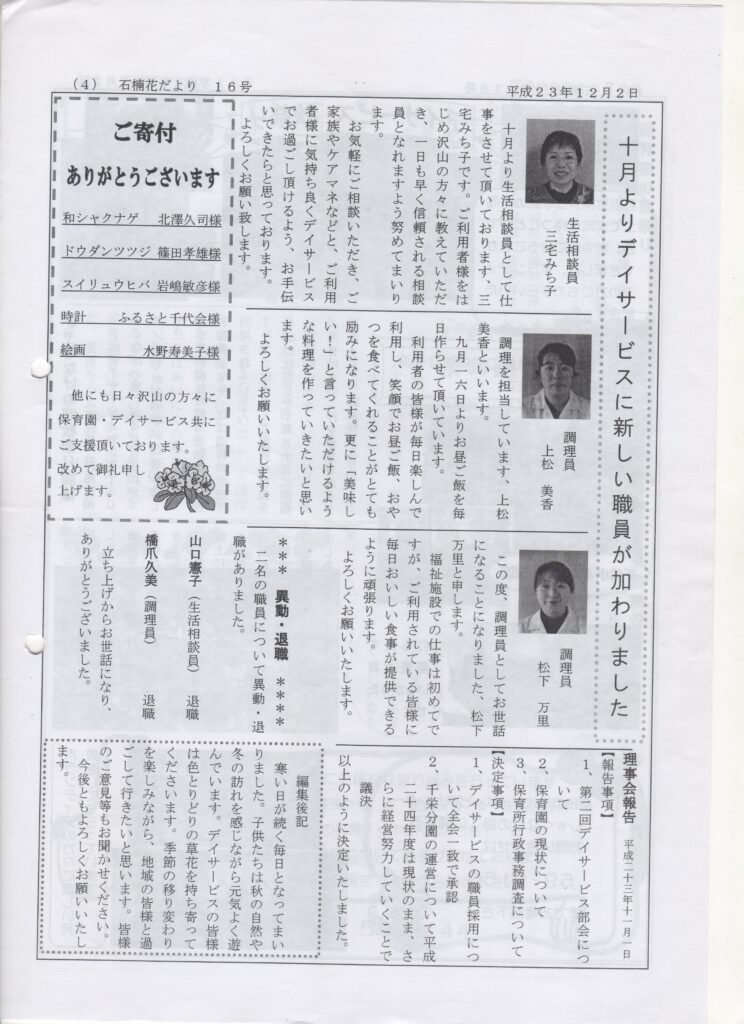 （4）　石楠花だより　１６号
平成２３年１２月２日
十月よりデイサービスに新しい職員が加わりました
生活相談員
三宅みち子
十月より生活相談員として仕
事をさせて頂いております、三
宅みち子です。ご利用者様をは
じめ沢山の方々に教えていただ
き、一日も早く信頼される相談
員となれますよう努めてまいり
ます。
お気軽にご相談いただき、ご
家族やケアマネなどと、ご利用
者様に気持ち良くデイサービス
でお過ごし頂けるよう、お手伝
いできたらと思っております。
よろしくお願い致します。
調理員
上松　美香
調理を担当しています、上松
美香といいます。
九月一六日よりお昼ご飯を毎
日作らせて頂いています。
利用者の皆様が毎日楽しんで
利用し、笑顔でお昼ご飯、おや
つを食べてくれることがとても
励みになります。更に「美味し
い！」と言っていただけるよう
な料理を作っていきたいと思い
ます。
よろしくお願いいたします。
調理員
松下　万里
この度、調理員としてお世話
になることになりました、松下
万里と申します。
福祉施設での仕事は初めてで
すが、ご利用されている皆様に
毎日おいしい食事が提供できる
ように頑張ります。
よろしくお願いいたします。
＊＊＊　異動・退職　＊＊＊＊
二名の職員について異動・退
職がありました。
山口憲子（生活相談員）　退職
橋爪久美（調理員）　退職
立ち上げからお世話になり、
ありがとうございました。
ご寄付
ありがとうございます
和シャクナゲ　北澤久司様
ドウダンツツジ　篠田孝雄様
スイリュウヒバ　岩嶋敏彦様
時計　ふるさと千代会様
絵画　水野寿美子様
他にも日々沢山の方々に
保育園・デイサービス共に
ご支援頂いております。
改めて御礼申し
上げます。
理事会報告　平成二十三年十一月一日
【報告事項】
１、第二回デイサービス部会につ
いて
２、保育園の現状について
３、保育所行政事務調査について
【決定事項】
１、デイサービスの職員採用につ
いて全会一致で承認
２、千栄分園の運営について平成
二十四年度は現状のまま、さ
らに経営努力していくことで
議決
以上のように決定いたしました。
編集後記
寒い日が続く毎日となってまい
りました。子供たちは秋の自然や
冬の訪れを感じながら元気よく遊
んでいます。デイサービスの皆様
は色とりどりの草花を持ち寄って
くださいます。季節の移り変わり
を楽しみながら、地域の皆様と過
ごして行きたいと思います。皆様
のご意見等もお聞かせください。
今後ともよろしくお願いいたし
ます。